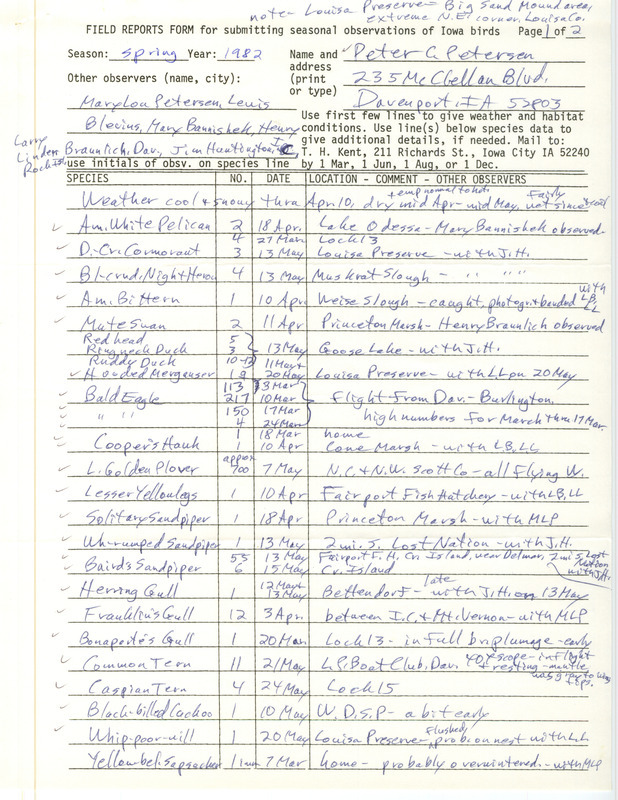 note- Louisa Preserve - Big Sand Mound area,
extreme N.E. corner, Louisa Co.
FIELD REPORTS FORM for submitting seasonal observations of Iowa birds Page 1 of 2
Season: Spring Year: 1982 Name and Peter C. Petersen
address
(print 235 McClellan Blvd.
or type)
Other observers (name, city): Davenport, IA 52803
Marylou Petersen, Lewis
Blevins, Mary Bannishek, Henry
Braunlich, Dav., Jim Huntington, I.C.
Larry
Linden
use initials of obsv. on species line
Use first few lines to give weather and habitat
conditions. Use line(s) below species data to
give additional details, if needed. Mail to:
T. H. Kent, 211 Richards St., Iowa City IA 52240
by 1 Mar, 1 Jun, 1 Aug, or 1 Dec.
SPECIES NO. DATE LOCATION - COMMENT - OTHER OBSERVERS
Weather cool & snowy thru Apr 10, dry mid Apr - mid May, wet since
temp normal to hot. Fairly cool
Am. White Pelican 2 18 Apr. Lake Odessa - Mary Bannishek observed
4 27 Mar Lock 13
D.-Cr. Cormorant 3 13 May Louisa Preserve - with J.H.
Bl.-crnd. Night Heron 4 13 May Muskrat Slough - " " "
Am. Bittern 1 10 Apr Weise Slough - caught, photogr. & banded with LB, LL
Mute Swan 2 11 Apr Princeton Marsh - Henry Braunlich observed
Redhead 5
Ringneck Duck 3 13 May Goose Lake - with J.H.
Ruddy Duck 10-13 11 May +
Hooded Merganser 19 20 May Louisa Preserve - with LL on 20 May
113 3 Mar
Bald Eagle 217 10 Mar Flight from Dav. - Burlington
" " 150 17 Mar high numbers for March thru 17 Mar.
4 24 Mar
1 18 Mar home
Cooper's Hawk 1 10 Apr Cone Marsh - with LB, LL
L. Golden Plover approx 700 7 May N.C. & N.W. Scott Co - all flying W.
Lesser Yellowlegs 1 10 Apr Fairport Fish Hatchery - with LB, LL
Solitary Sandpiper 1 18 Apr Princeton Marsh - with MLP
Wh-rumped Sandpiper 1 13 May 2 mi. S. Lost Nation - with J.H.
Baird's Sandpiper 55 13 May Fairport F.H., Cr. Island, near Delmar, 2 mi S. Lost Nation with J.H.
6 15 May Cr. Island
Herring Gull 1 12 May + 13 May Bettendorf - with J.H. on 13 May
late
Franklin's Gull 12 3 Apr. between I.C. & Mt. Vernon - with MLP
Bonaparte's Gull 1 20 Mar Lock 13 - in full br. plumage - early
Common Tern 11 21 May L.P. Boat Club, Dav. 40x scope - in flight
+ resting - mantle
was gray to wing
tips.
Caspian Tern 4 24 May Lock 15
Black-billed Cuckoo 1 10 May W.D.S.P. - a bit early
Whip-poor-will 1 20 May Louisa Preserve - flushed, prob. on nest with LL
Yellow-bel. Sapsucker 1 imm 7 Mar home - probably overwintered. - with MLP